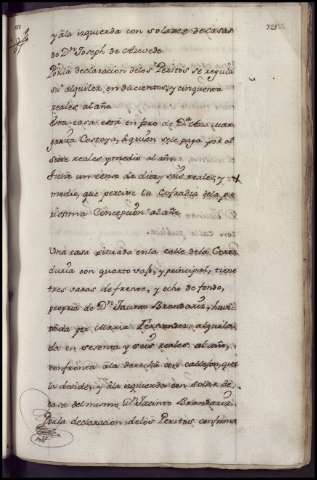 y á la izquierda con solar de casas
de Dn. Joseph de Azevedo
Por la declaracion de los Peritos se regula
su alquiler, en doscientos, y cinquenta
reales al año
Esta casa está en foro de Da. Ana Juana
Garza Costoya, á quien se le paga por el
siete reales y medio al año
tiene un censo de diez y seis reales, y
medio, que percive la Cofradia de la Pu
rissima Concepcion al año
Una casa situada en la calle de la Corre
duria con quarto vajo, y principal, tiene
tres varas de frente, y ocho de fondo,
propria de Dn. Jacinto Brandariz, havi
tada por Maria Fernandez, alquila
da en sesenta y seis reales al año,
confronta á la derecha con callejon, que
la divide, y á la izquierda con solar de
casa del mismo Dn. Jacinto Brandariz
Por la declaracion de los Peritos confirma